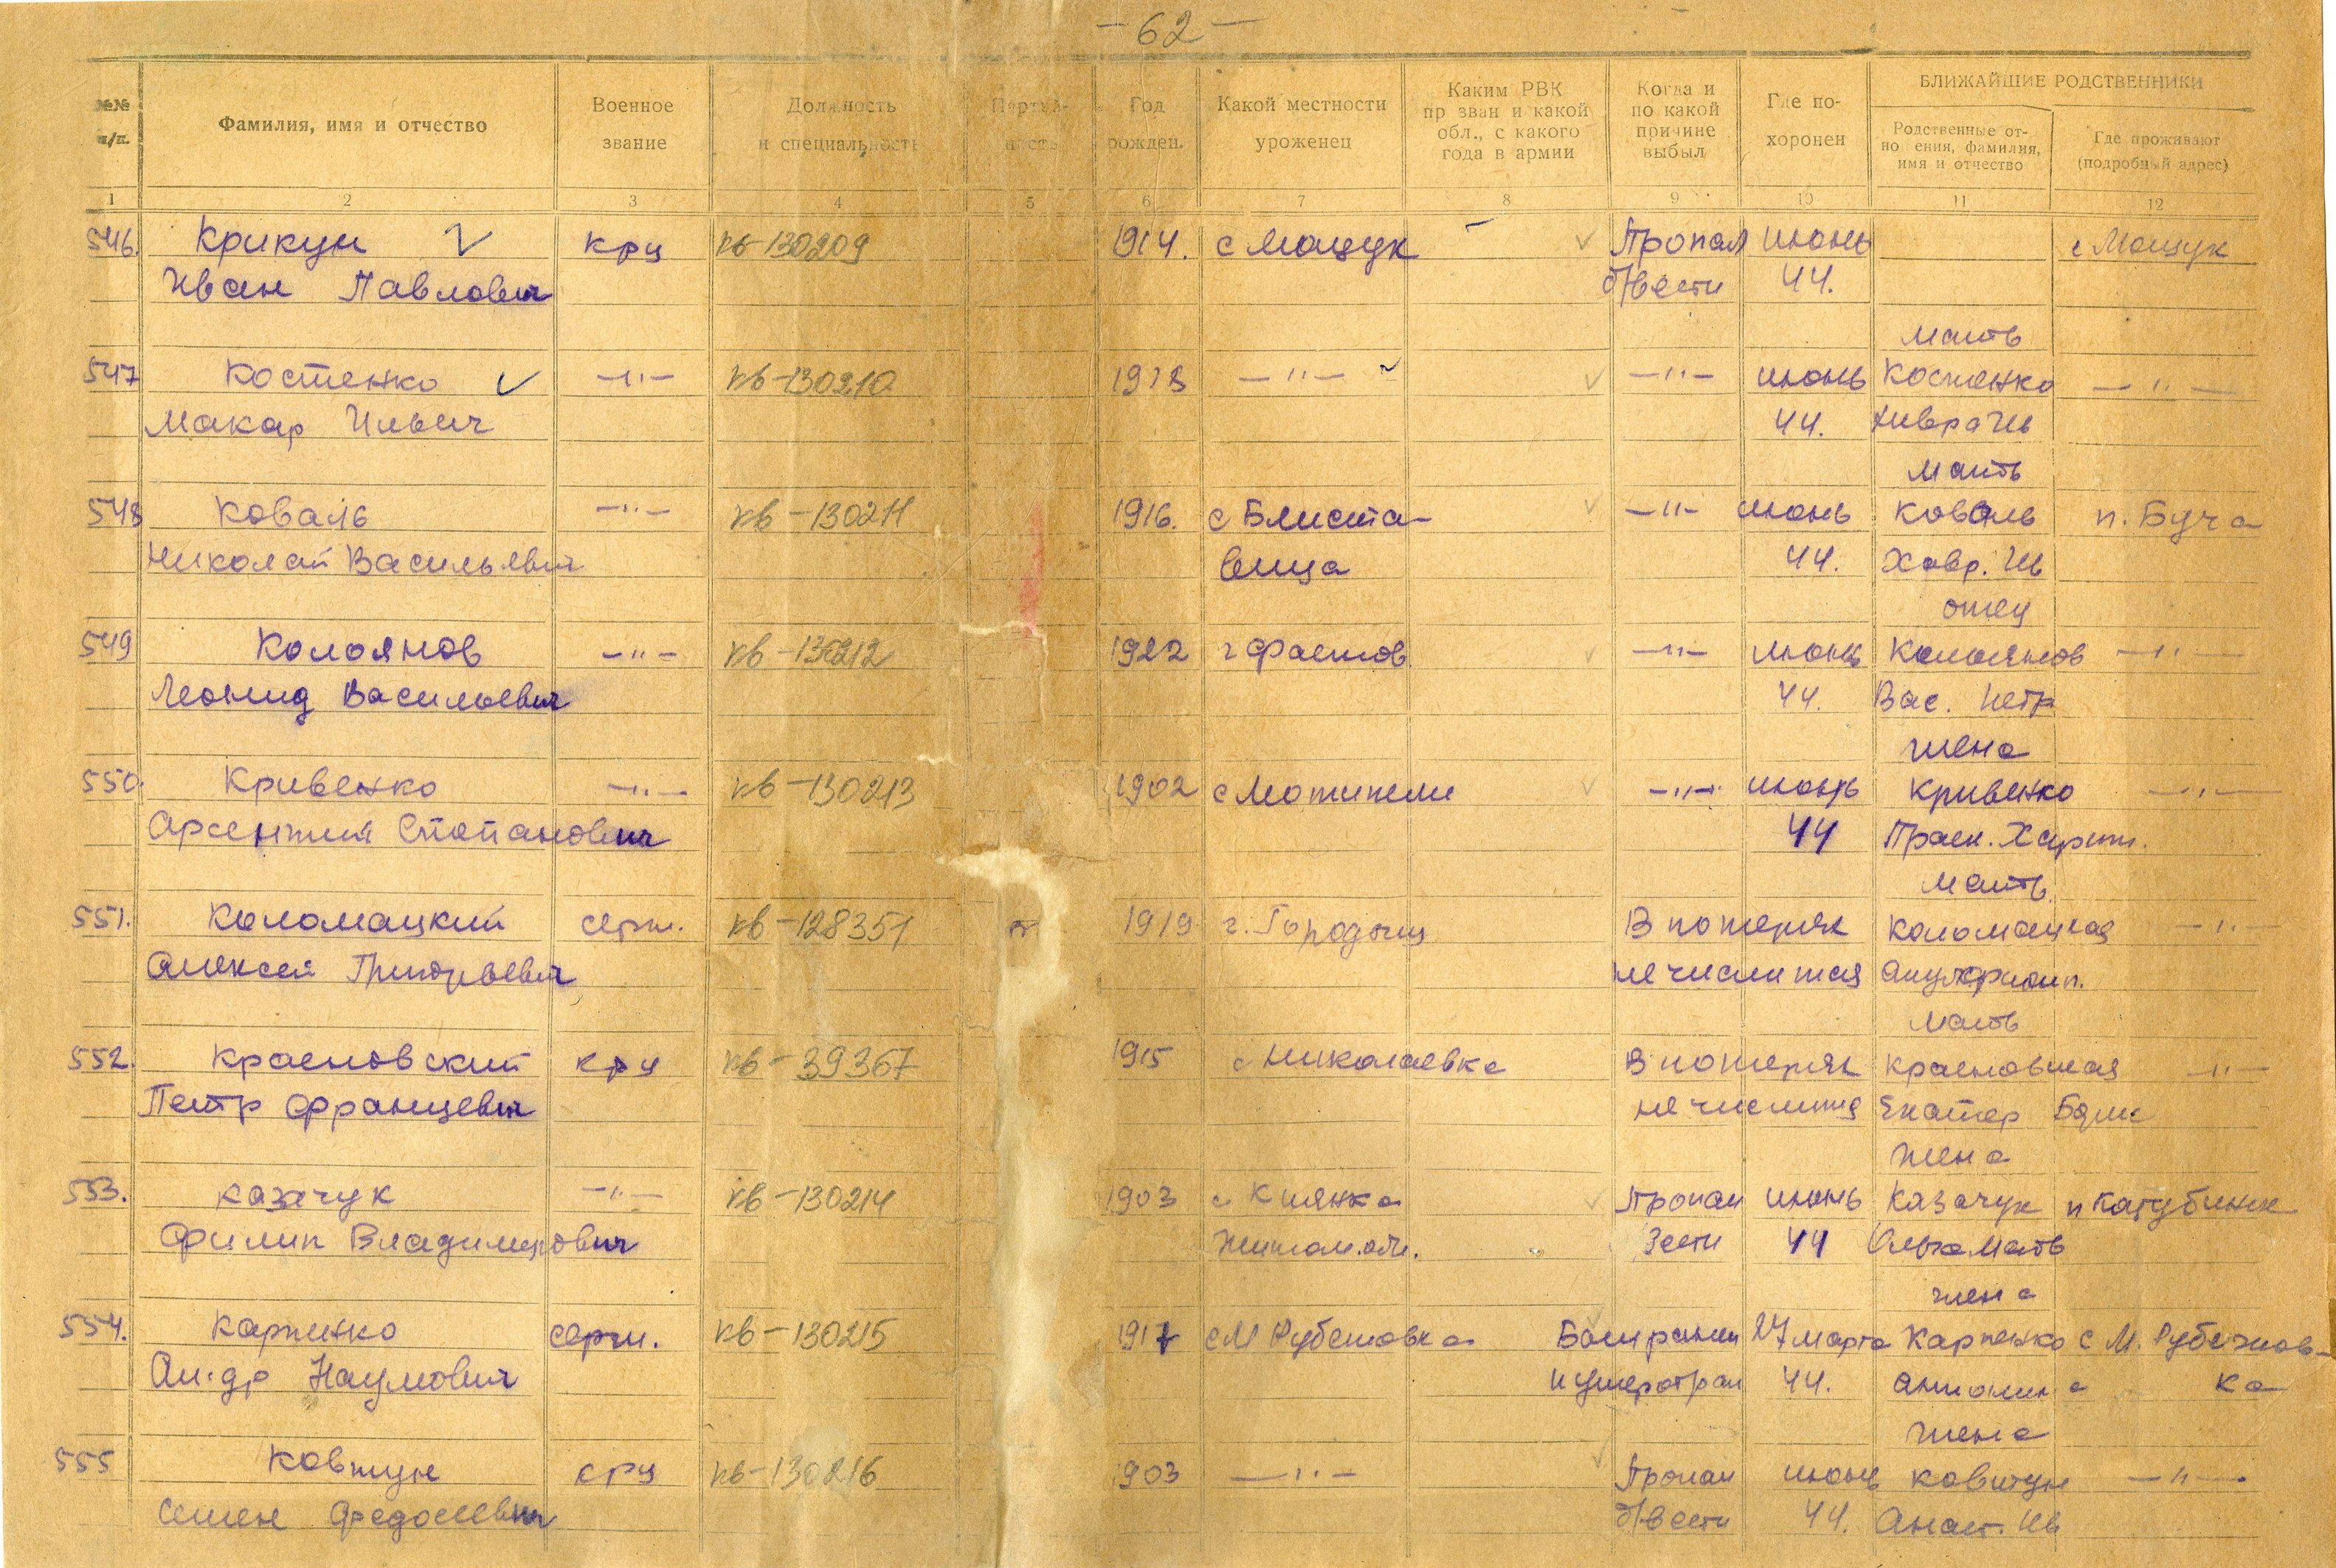 — 62 —
№№ п/п.
Фамилия, имя и отчество
Военное звание
Должность и специальность
Партий-ность
Год рожден.
Какой местности уроженец
Каким РВК пр зван и какой обл., с какого года в армии
Когда и по какой причине выбыл
Где по-хоронен
БЛИЖАЙШИЕ РОДСТВЕННИКИ
Родственные от-но ения, фамилия, имя и отчество
Где проживают (подробный адрес)
1 2 3 4 5 6 7 8 9 10 11 12
546. Крикун кр-ц кв-130209 1914. с Мощук — Пропал июнь с Мощук
Иван Павлович б/вести 44.
мать
547 Костенко —"— кв-130210 —"— —"— июнь Костенко —"—
Макар Ильич 44.
мать
548 Коваль —"— кв-130211 1916. с Блиста- —"— июнь Коваль п. Буча
Николай Васильевич вица 44. Хавр. Ив
отец
549 Колоянов —"— кв-130212 1922 г Фастов —"— июнь Колоянов —"—
Леонид Васильевич 44. Вас. Петр
жена
550. Кривенко —"— кв-130213 1902 с Мотижели —"— июнь Кривенко —"—
Арсентий Степанович 44 Праск. Харит.
мать
551. Коломацкий серж. кв-128351 1919 г. Городищ В потерях Коломацкая —"—
Алексей Григорьевич не числится
мать
552. Красновский кр-ц кв-39367 1915 с Николаевка В потерях Красновская —"—
Петр Францевич не числится Екатер
жена
553. Казачук —"— кв-130214 1903 с. Киянка Пропал июнь Казачук
Филип Владимирович Житом. обл. вести 44 Ольга
жена
554. Карпенко серж. кв-130215 1917 с М Рубежовка 27 марта Карпенко с М. Рубежов-
Ал-др Наумович 44. Антонина ка
жена
555 Ковтун кр-ц кв-130216 1903 —"— Пропал июнь Ковтун —"—
Семен Федосеевич б/вести 44. Анаст. Ив